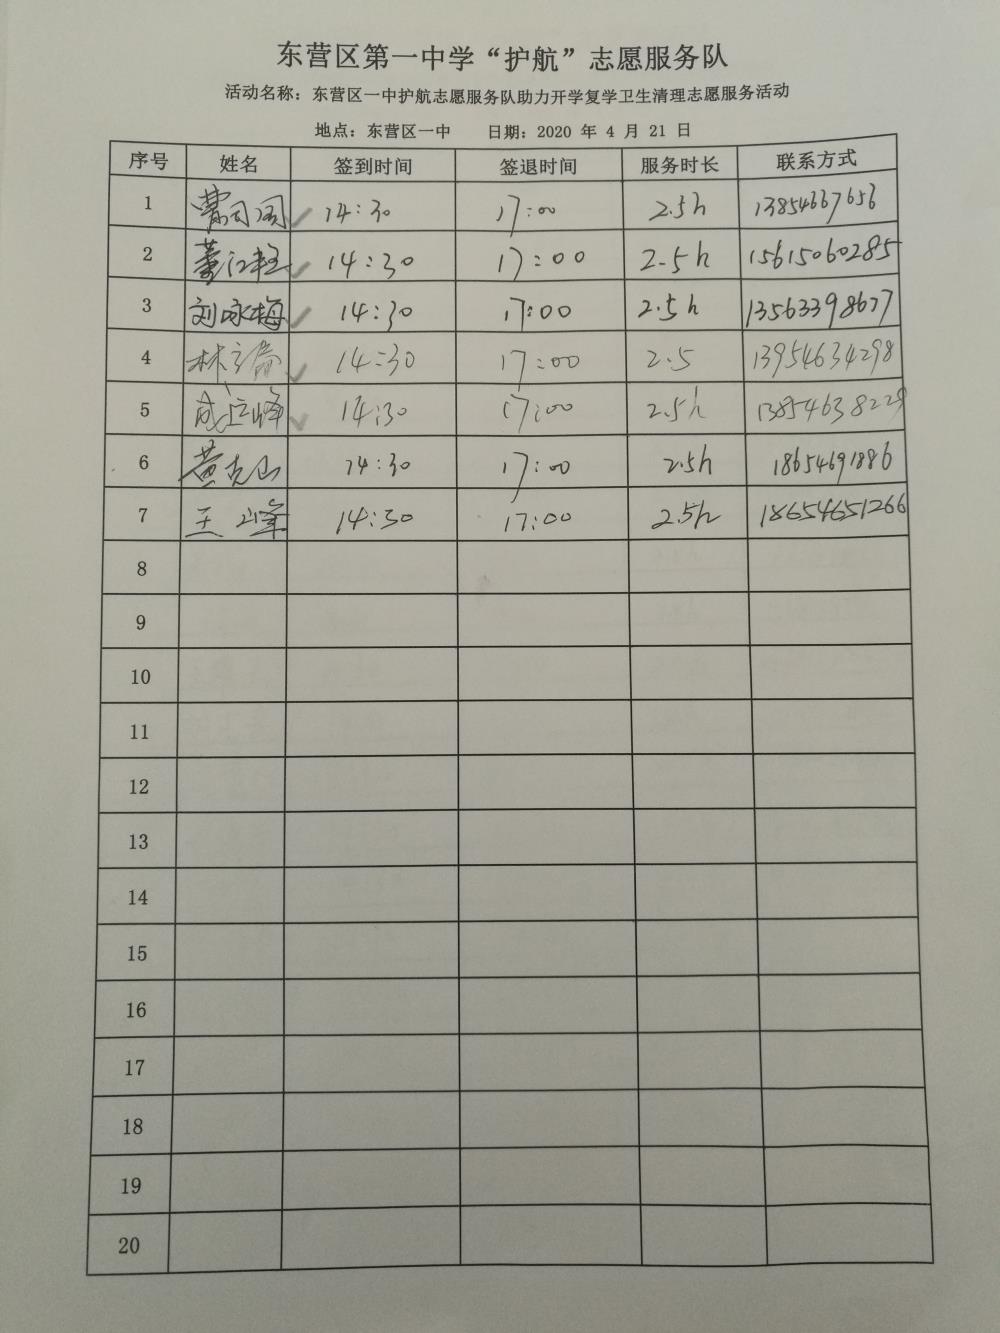 东营区第一中学“护航”志愿服务队
活动名称：东营区一中护航志愿服务队助力开学复学卫生清理志愿服务活动
地点：东营区一中 日期：2020 年 4 月 21 日
序号 姓名 签到时间 签退时间 服务时长 联系方式
1 14:30 17:00 2.5h 13854667656
2 14:30 17:00 2.5h 15615060285
3 刘咏梅 14:30 17:00 2.5h 13563398677
4 14:30 17:00 2.5 13954634298
5 成立峰 14:30 17:00 2.5h 13854638229
6 黄克山 14:30 17:00 2.5h 18654691886
7 王峰 14:30 17:00 2.5h 18654651266
8
9
10
11
12
13
14
15
16
17
18
19
20